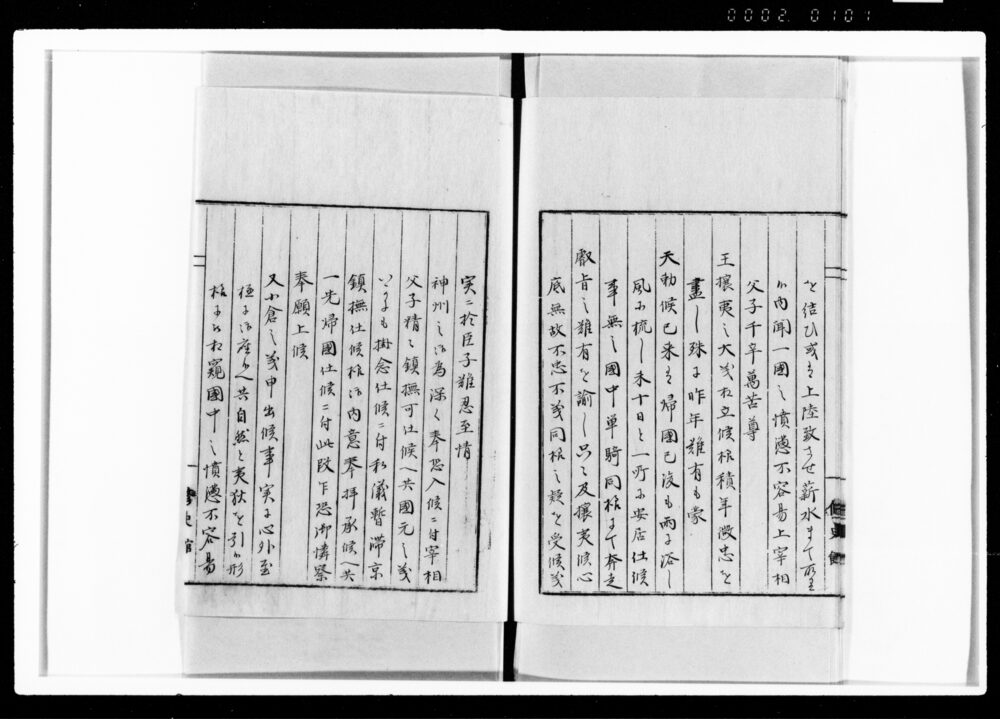 0002 0101
を結ひ或は上陸致させ薪水まて取
内聞一國之憤懣不容易上宰相
父子千辛萬苦尊
王攘夷之大義相立候様積年微忠を
盡し殊に昨年難有も蒙
天勅候已来は帰國已後も雨に浴し
風に梳し未十日と一所に安居仕候
事無之國中単騎同様にて奔走
叡旨之難有を諭し只々及攘夷候心
底無故不忠不義同様之疑を受候義
実ニ於臣子難忍至情
神州之御為深く奉恐入候ニ付宰相
父子精々鎮撫可仕候へ共國元之義
いかにも掛念仕候ニ付私儀暫滞京
鎮撫仕候様御内意奉拝承候へ共
一先帰國仕候ニ付此段乍恐御憐察
奉願上候
又小倉之義申出候事実に心外至
極に御座候へ共自然と夷狄を引
様子にて相窺國中之憤懣不容易
修史館